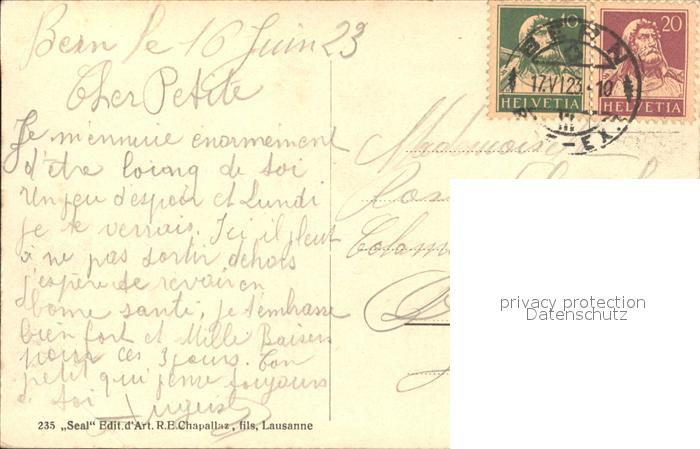 Bern le 16 Juin 23
Cher Petite
Je m'ennuie enormement
d'être loing de toi
Un peu d'espoir et Lundi
je te verrais. Ici il pleut
à ne pas sortir dehors
j'espère te revoir en
bonne santé, je t'embrasse
bien fort et Mille Baisers
pour ces 3 jours. Ton
petit qui pense toujours
à toi
August
235 „Seal" Edit. d'Art. R.E.Chapallaz, fils, Lausanne
10
HELVETIA
20
HELVETIA
BERN
17.VI.23.-10
III
EXP
Mademoiselle
privacy protection
Datenschutz